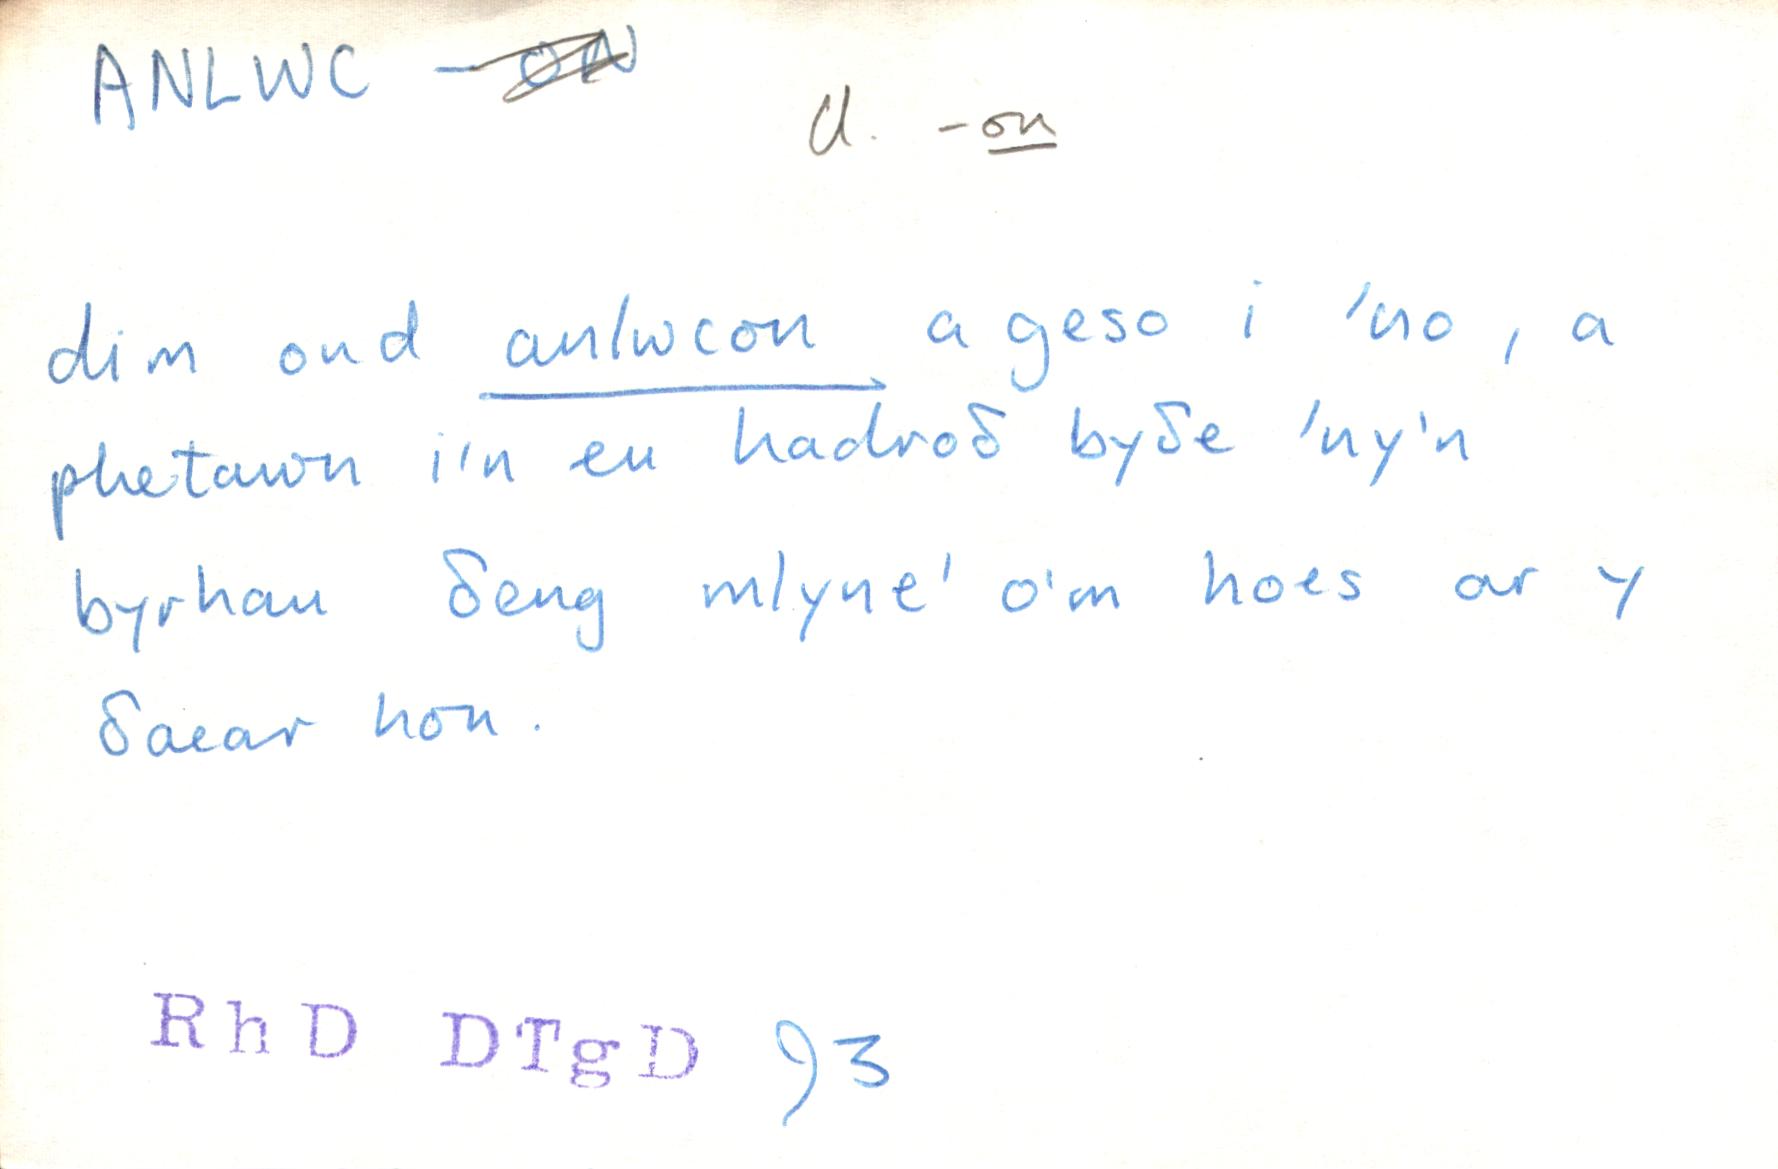 ANLWC - ON
ll. -on
dim ond anlwcon a geso i 'no, a
phetawn i'n eu hadroδ byδe 'ny'n
byrhau δeng mlyne' o'm hoes ar y
δaear hon.
RhD DTgD 93